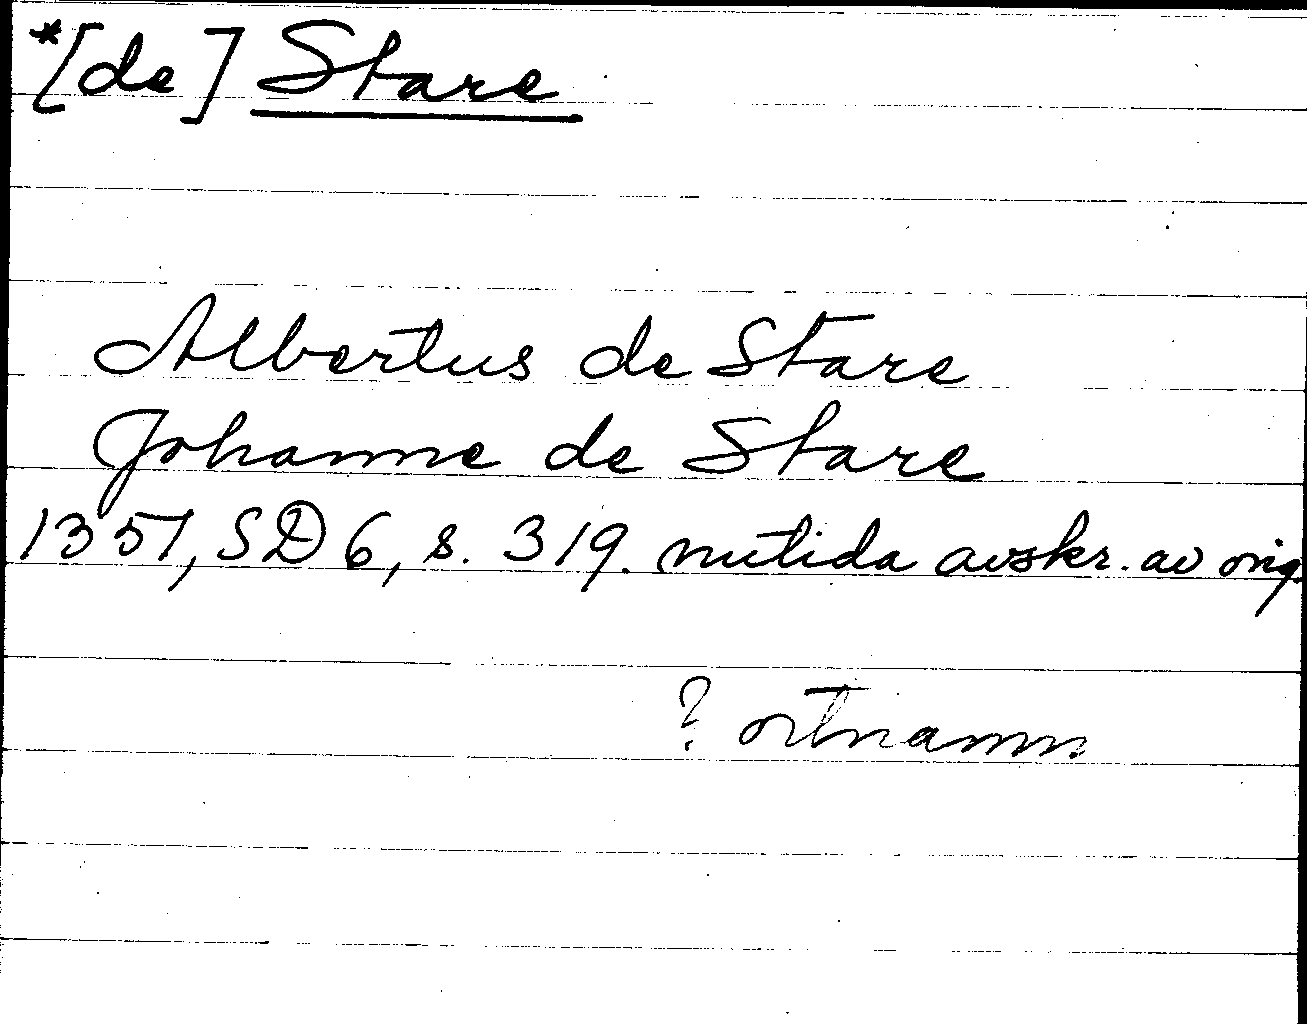 *[de] Stare
Albertus de Stare
Johanne de Stare
1351, SD 6, s. 319. nutida avskr. av orig.
? ortnamn